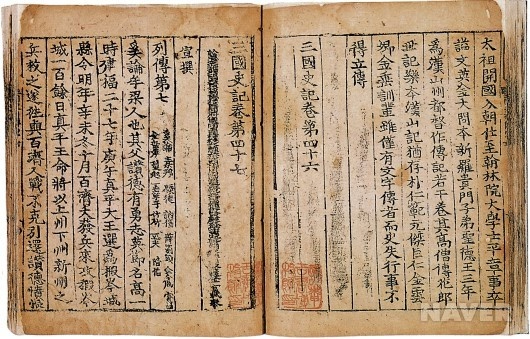 太祖開國入朝仕至翰林院大學士平章事卒
諡文英金大問本新羅貴門子弟聖德王三年
爲漢山州都督作傳記若干卷其高僧傳花郎
世記樂本漢山記猶存朴仁範元傑巨仁金雲
卿金垂訓輩雖僅有文字傳者而史失行事不
得立傳
三國史記卷第四十六
三國史記卷第四十七
宣撰
列傳第七
奚論牟梁人也其父讚德有勇志英節名高一
時建福二十七年庚午真平大王選爲椵岑城
縣令明年辛未冬十月百濟大發兵來攻椵岑
城一百餘日真平王命將以上州下州新州之
兵救之遂往與百濟人戰不克引還讚德憤恨
NAVER